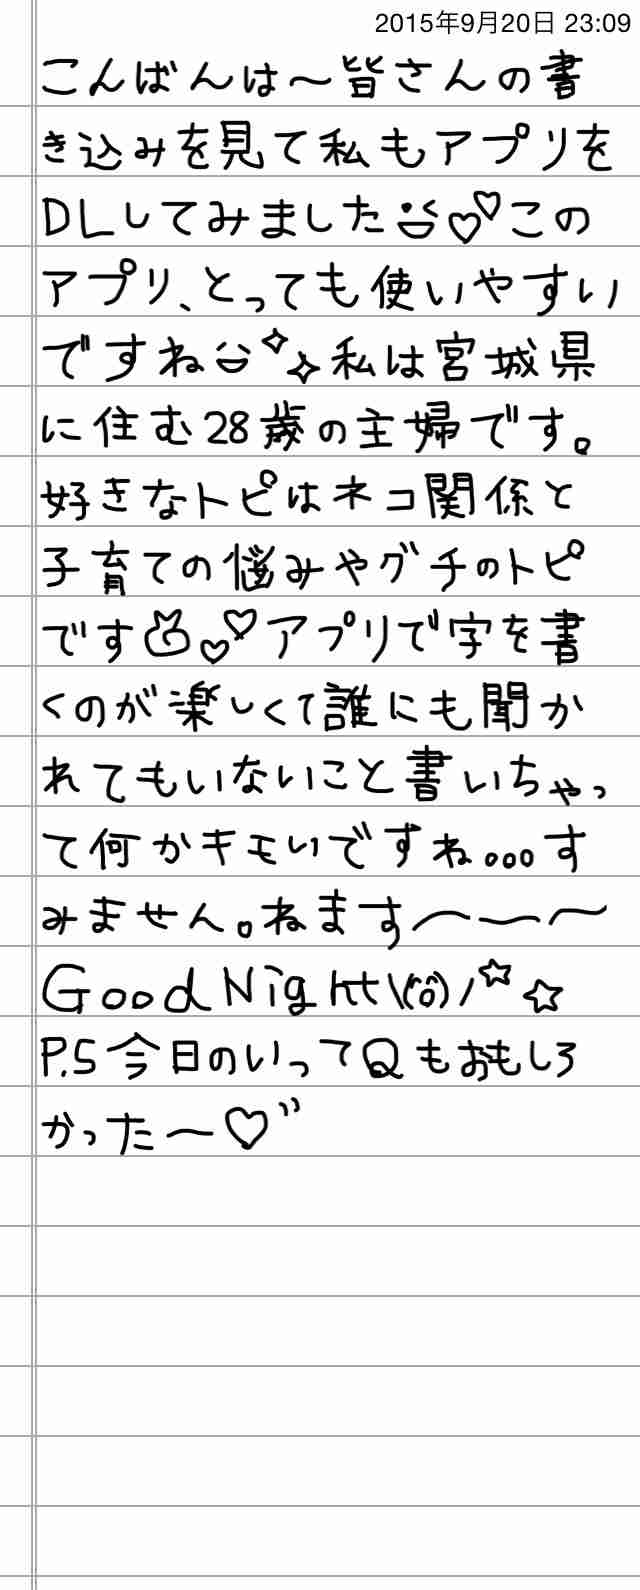 2015年9月20日 23:09
こんばんは〜皆さんの書
き込みを見て私もアプリを
DLしてみました😆💕この
アプリ、とっても使いやすい
ですね😄✨私は宮城県
に住む28歳の主婦です。
好きなトピはネコ関係と
子育ての悩みやグチのトピ
です✌💕アプリで字を書
くのが楽しくて誰にも聞か
れてもいないこと書いちゃっ
て何かキモいですね。。。す
みません。ねます〜〜〜
Good Night\(^o^)/☆☆
P.S今日のいってQもおもしろ
かった〜♡"